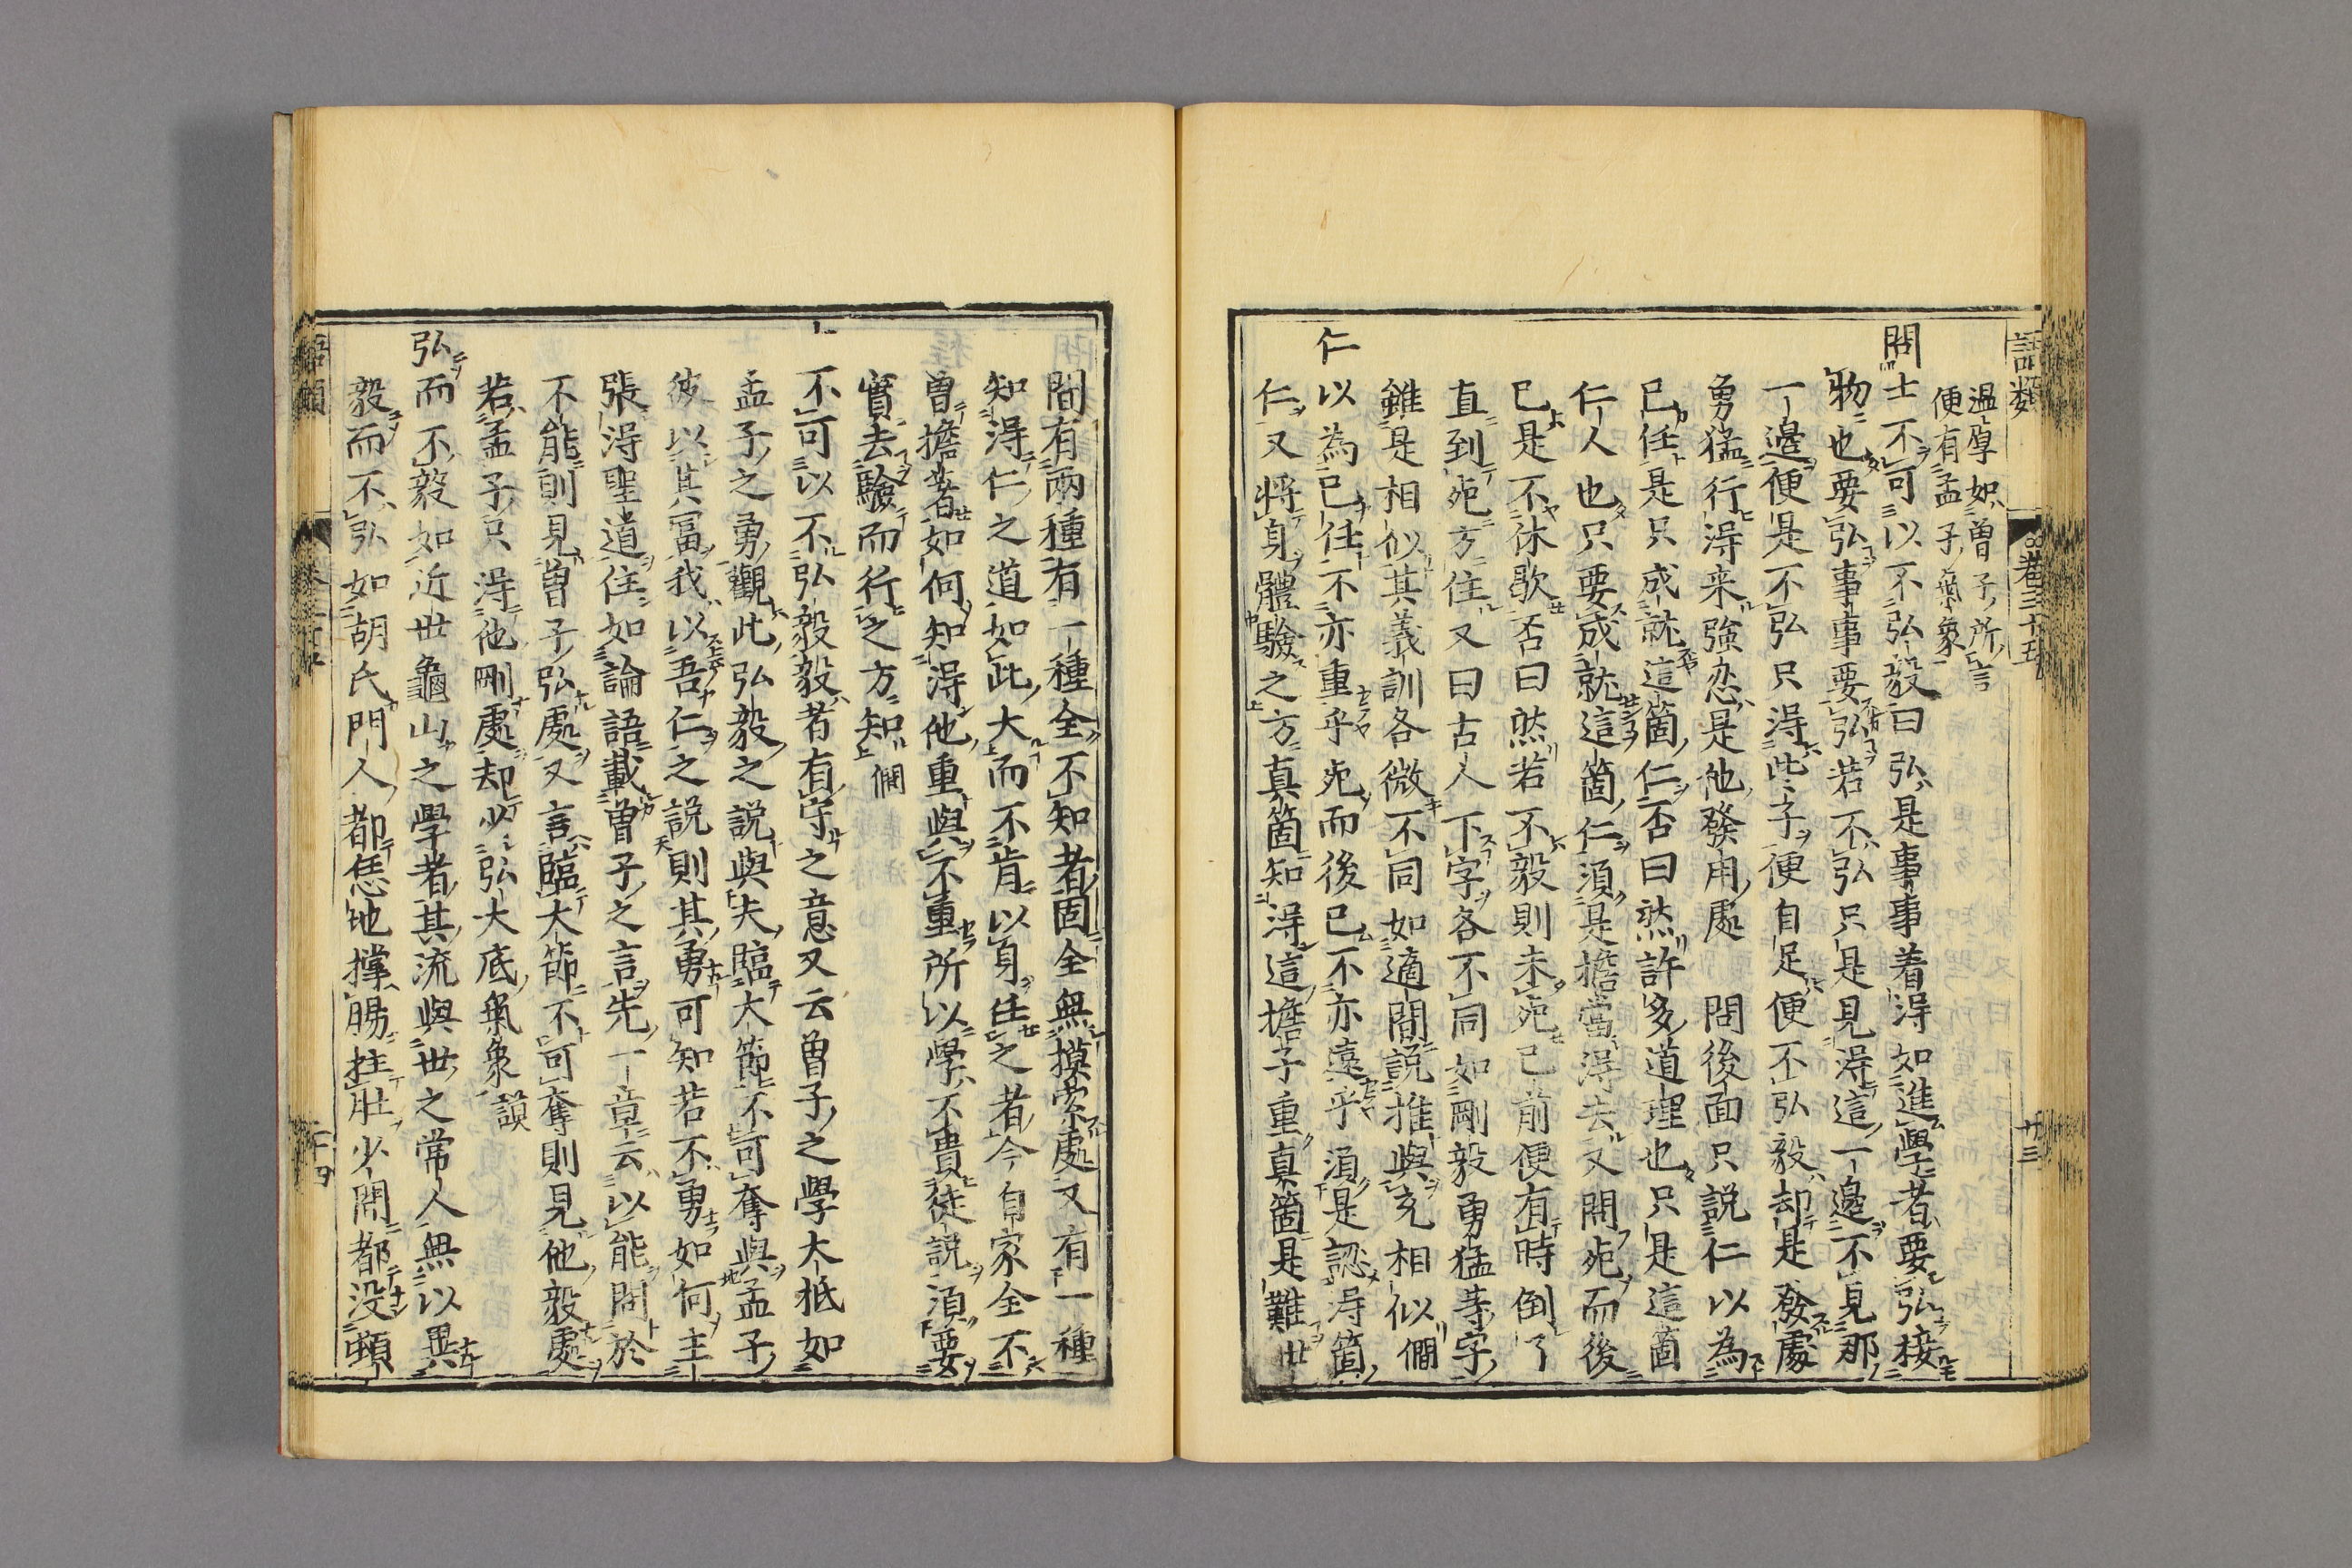 語類
巻三十五
廿三
温厚如曽子所言
便有孟子氣象
問士不可以不弘毅曰弘是事事着得如進學者要弘接
物也要弘事事要弘若不弘只是見得這一邊不見那
一邊便是不弘只得些子便自足便不弘毅却是發處
勇猛行得来強忍是他發用處 問後面只説仁以為
已任是只成就這箇仁否曰然許多道理也只是這箇
仁人也只要成就這箇仁須是擔當得去又問死而後
已是不休歇否曰然若不毅則未死已前便有時倒了
直到死方住又曰古人下字各不同如剛毅勇猛等字
雖是相似其義訓各微不同如適間説推與充相似僩
仁以為已任不亦重乎死而後已不亦遠乎須是認得箇
仁又将身體驗之方真箇知得這擔子重真箇是難世
間有兩種有一種全不知者固全無摸索處又有一種
知得仁之道如此大而不肯以身任之者今自家全不
曽擔著如何知得他重與不重所以學不貴徒説須要
實去驗而行之方知僩
不可以不弘毅毅者有守之意又云曽子之學大抵如
孟子之勇觀此弘毅之説與夫臨大節不可奪與孟子
彼以其富我以吾仁之説則其勇可知若不勇如何主
張得聖道住如論語載曽子之言先一章云以能問於
不能則見曽子弘處又言臨大節不可奪則見他毅處
若孟子只得他剛處却少弘大底氣象謨
弘而不毅如近世龜山之學者其流與世之常人無以異
毅而不弘如胡氏門人都恁地撑腸拄肚少間都没頓
語類